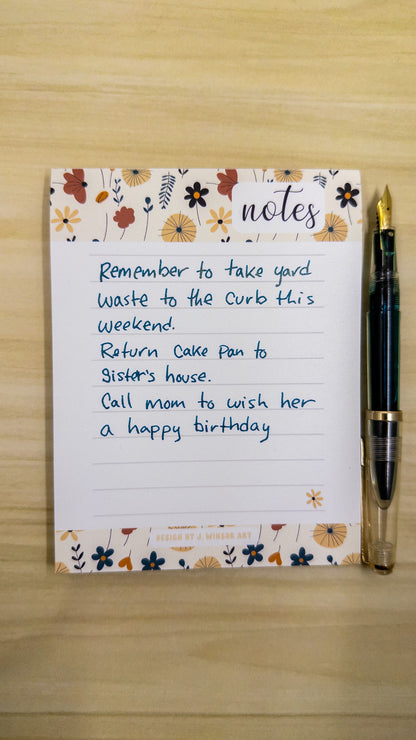 notes
Remember to take yard
waste to the curb this
weekend.
Return cake pan to
Sister's house.
Call mom to wish her
a happy birthday
DESIGN BY J. WINSOR ART